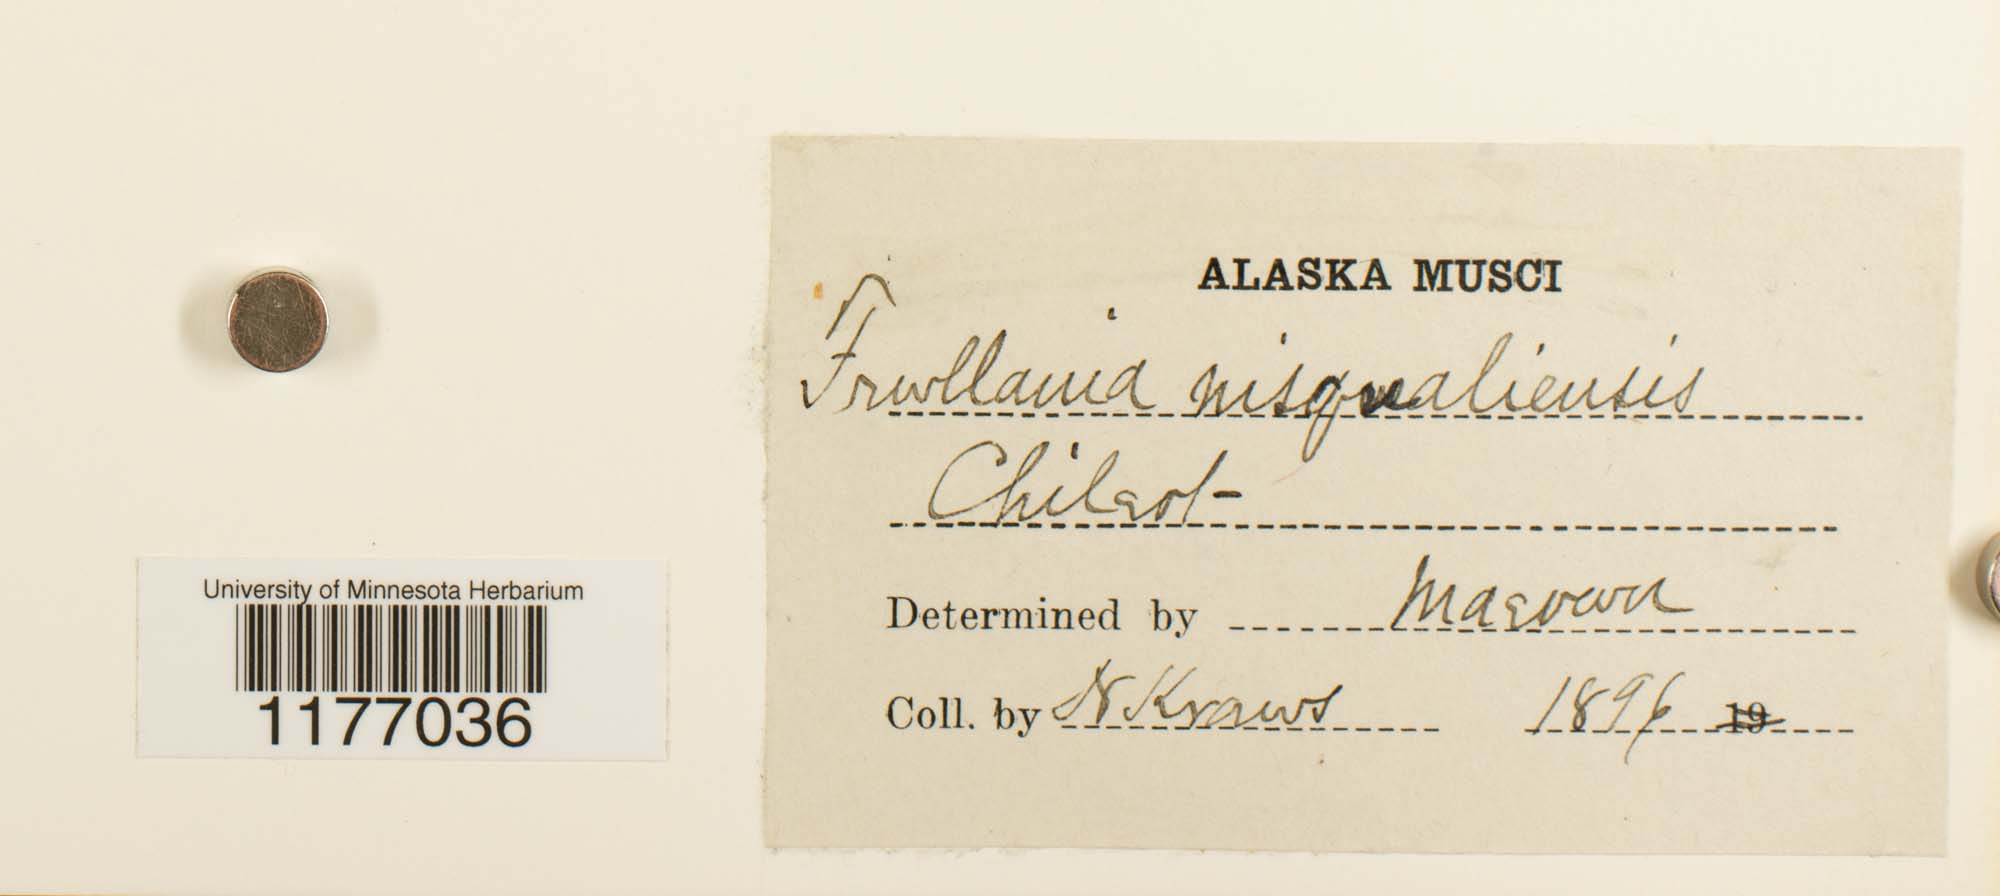 ALASKA MUSCI
Frullania nisqualiensis
Chilcot
Determined by Macoun
Coll. by Krause 1896 19
University of Minnesota Herbarium
1177036